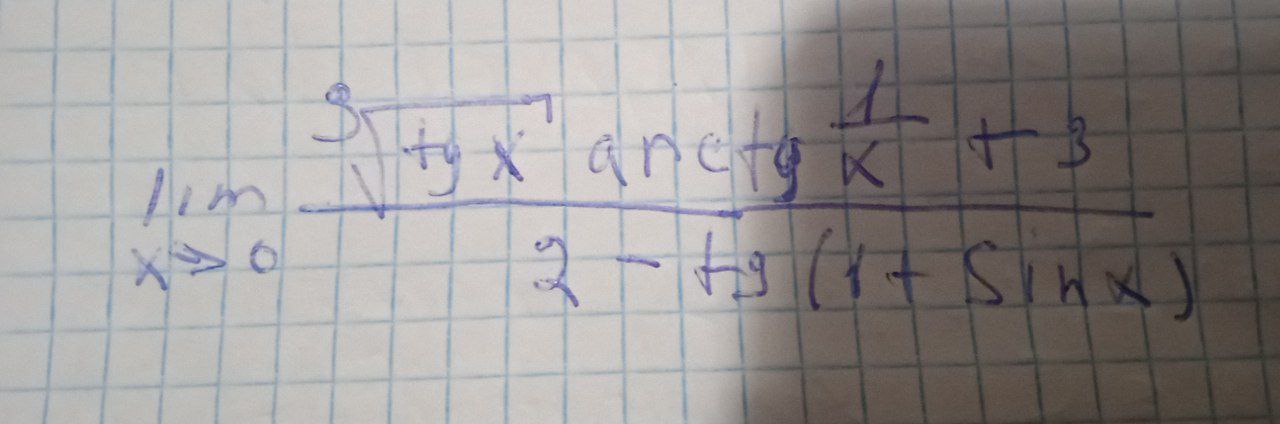 lim x→0
∛(tg x) arctg 1/x + 3
2 - tg (1 + sin x)